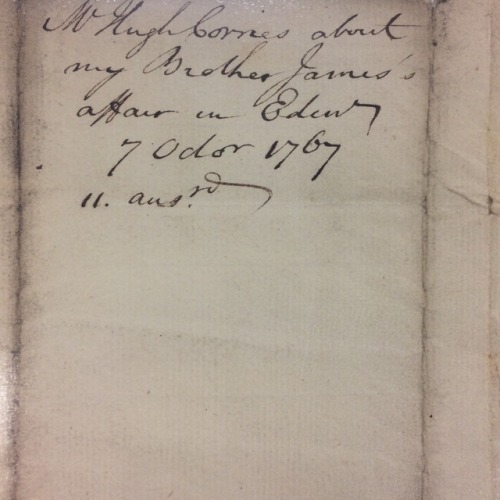 Mr Hugh Corries about
my Brother James's
affair in Edinr
7 Octor 1767
11. ansrd